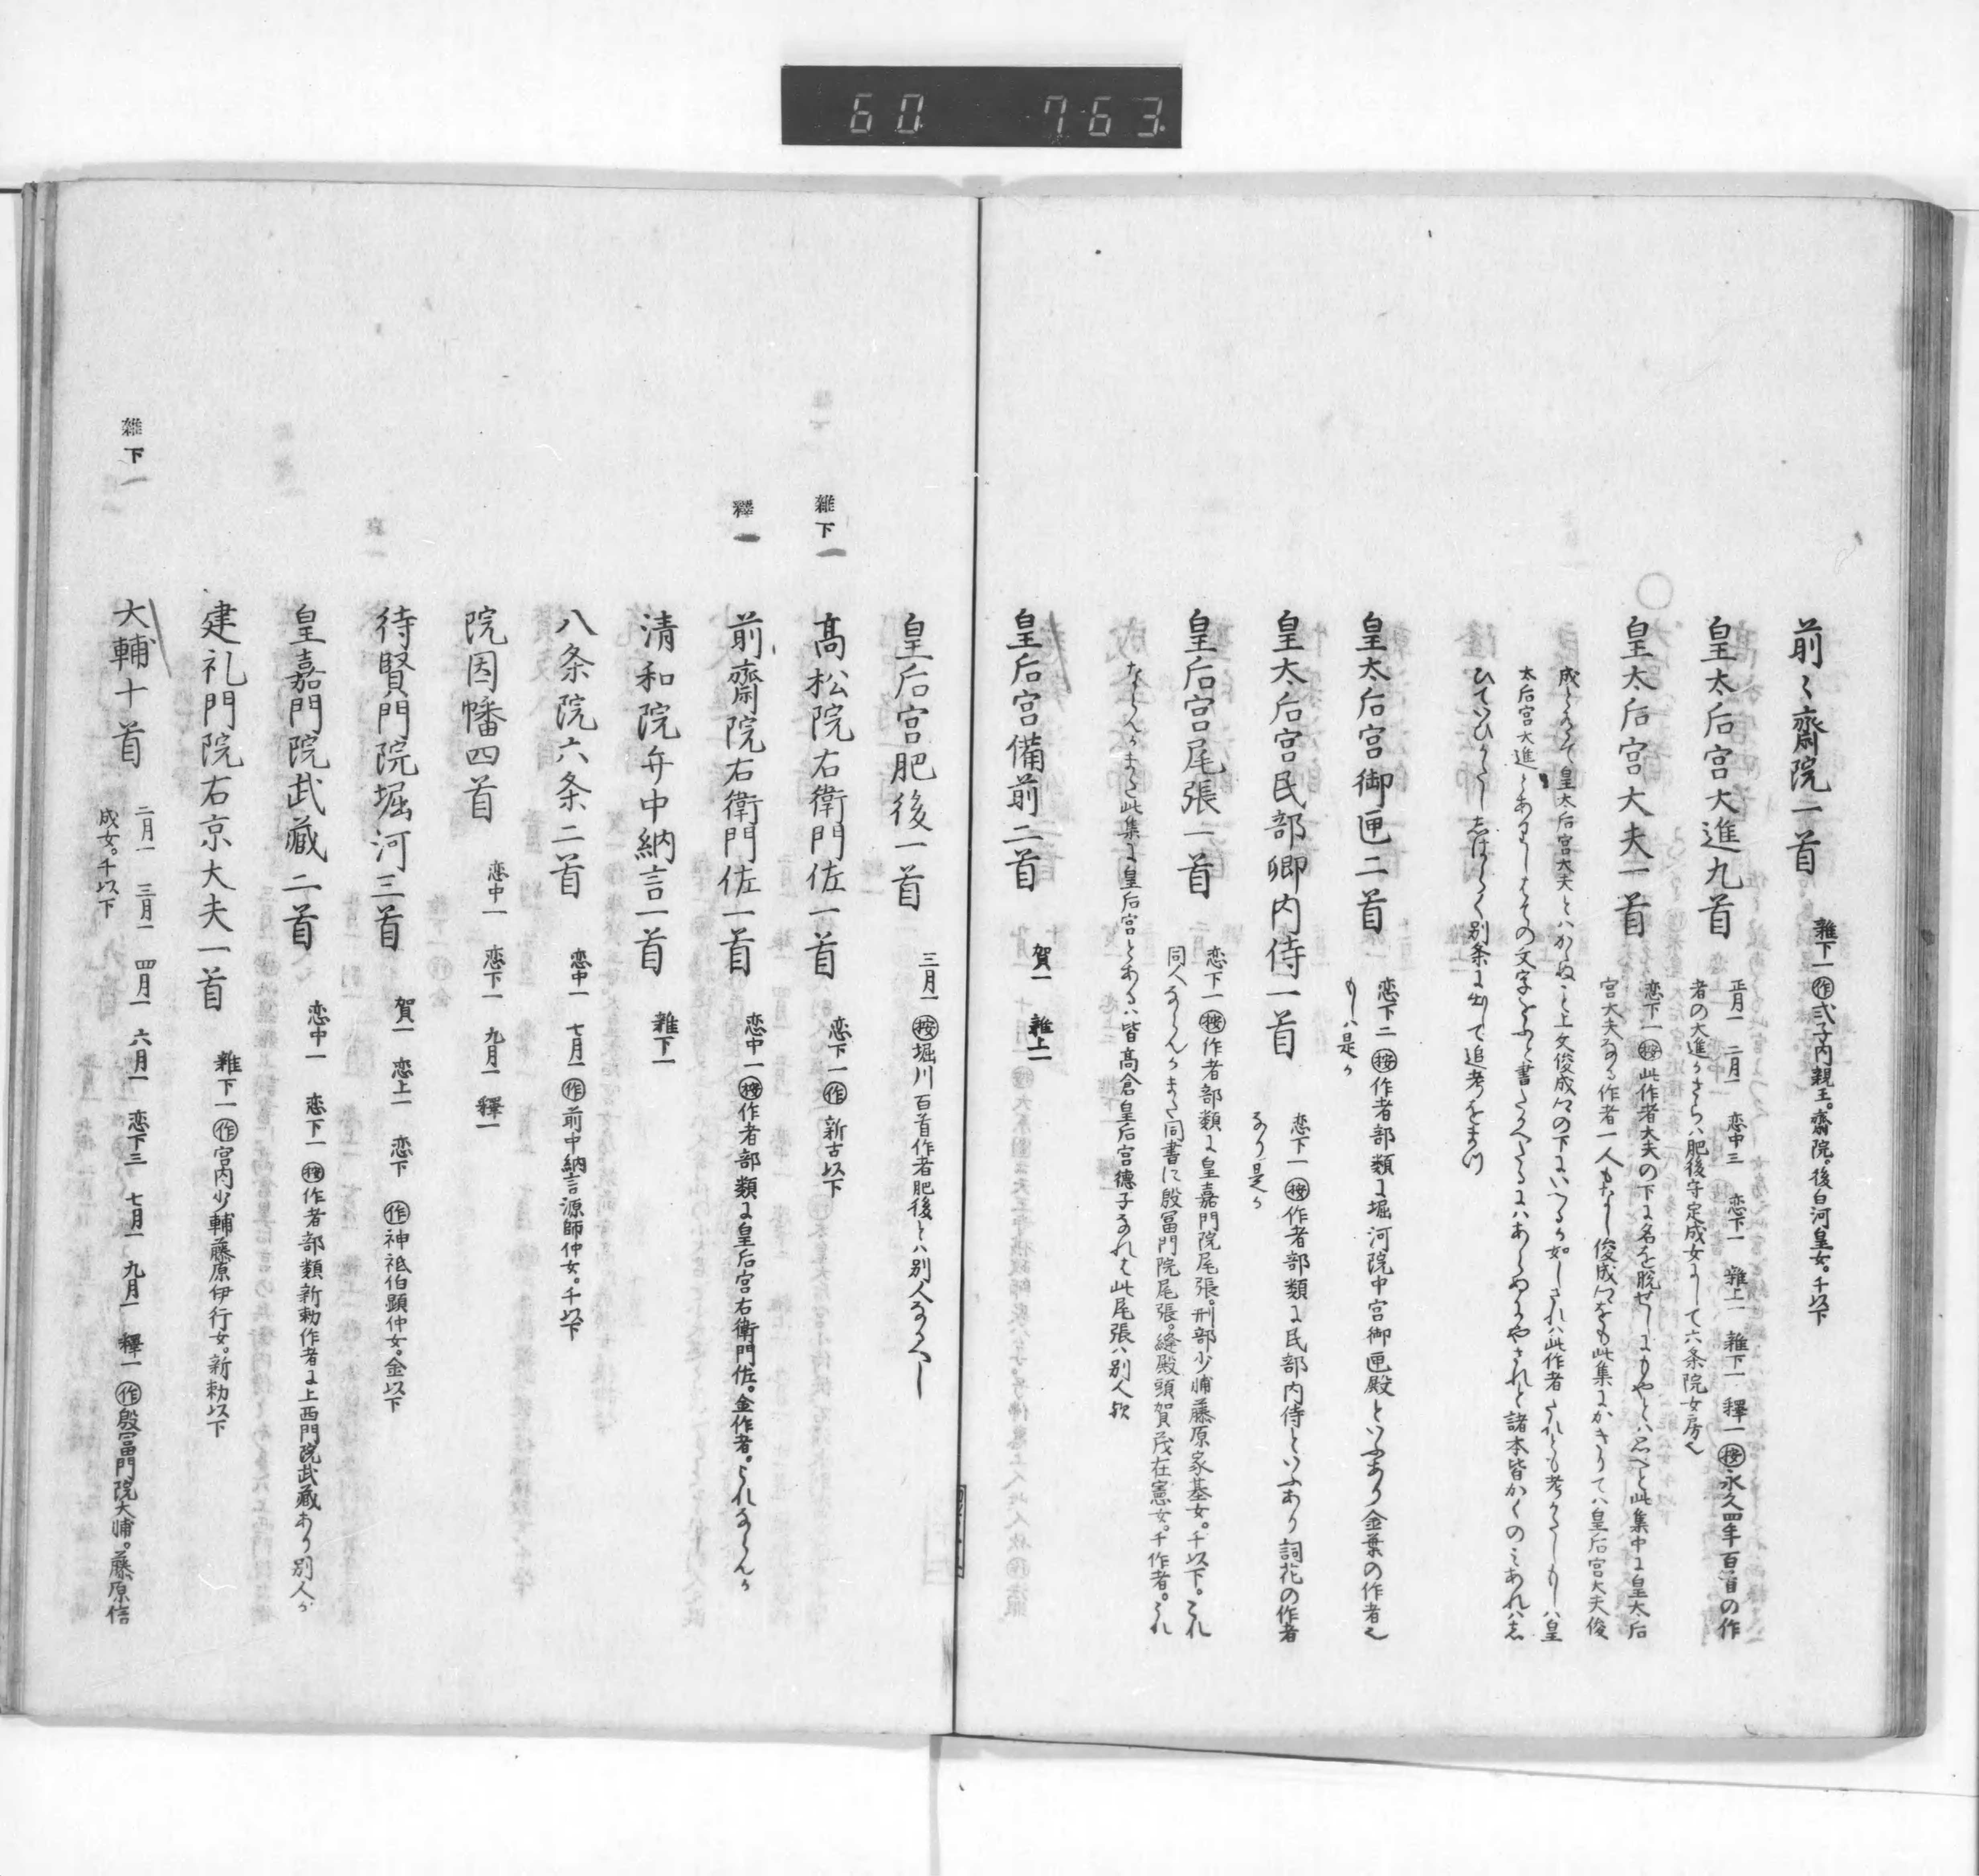 60 763
前〻齋院一首
雜下一㊟作式子内親王。齋院。後白河皇女。千以下
皇太后宮大進九首
正月一 二月一 恋中三 恋下一 雜上一 雜下一 釋一 按永久四年百首の作
者の大進かさらハ肥後守定成女にして六条院女房也
皇太后宮大夫一首
恋下一 按此作者大夫の下に名を脱せしにもやとハ思へと此集中に皇太后
宮大夫なる作者一人もなし俊成々をも此集にかきりてハ皇后宮大夫俊
成とありて皇太后宮大夫とハかゝぬこと上文俊成々の下にいへるか如しされハ此作者されとも考かたしもしハ皇
太后宮大進とありしをその文字をふと書たかへたるにハあらぬかやされと諸本皆かくのミあれハ志
ひていひかたし志はらく別条に出して追考をまつ
皇太后宮御匣二首
恋下二 按作者部類に堀河院中宮御匣殿といふあり金葉の作者也
もしハ是か
皇太后宮民部卿内侍一首
恋下一 按作者部類に民部内侍といふあり詞花の作者
なり是か
皇后宮尾張一首
恋下一 按作者部類に皇嘉門院尾張。刑部少輔藤原家基女。千以下。これ
同人ならんかまた同書に殷冨門院尾張。縫殿頭賀茂在憲女。千作者。これ
ならんかまた此集に皇后宮とあるハ皆髙倉皇后宮德子なれは此尾張ハ別人歟
皇后宮備前二首
賀一 雜上一
皇后宮肥後一首
三月一 按堀川百首作者肥後とハ別人なるへし
雜下一
髙松院右衛門佐一首
恋下一 作 新古以下
釋一
前齋院右衛門佐一首
恋中一 按作者部類に皇后宮右衛門佐。金作者。これならんか
清和院弁中納言一首
雜下一
八条院六条二首
恋中一 七月一 作前中納言源師仲女。千以下
院因幡四首
恋中一 恋下一 九月一 釋一
待賢門院堀河三首
賀一 恋上一 恋下 作神祇伯顕仲女。金以下
皇嘉門院武藏二首
恋中一 恋下一 按作者部類新勅作者に上西門院武藏あり別人か
建礼門院右京大夫一首
雜下一 作宮内少輔藤原伊行女。新勅以下
雜下一
大輔十首
二月一 三月一 四月一 六月一 恋下三 七月一 九月一 釋一 作殷冨門院大輔。藤原信
成女。千以下